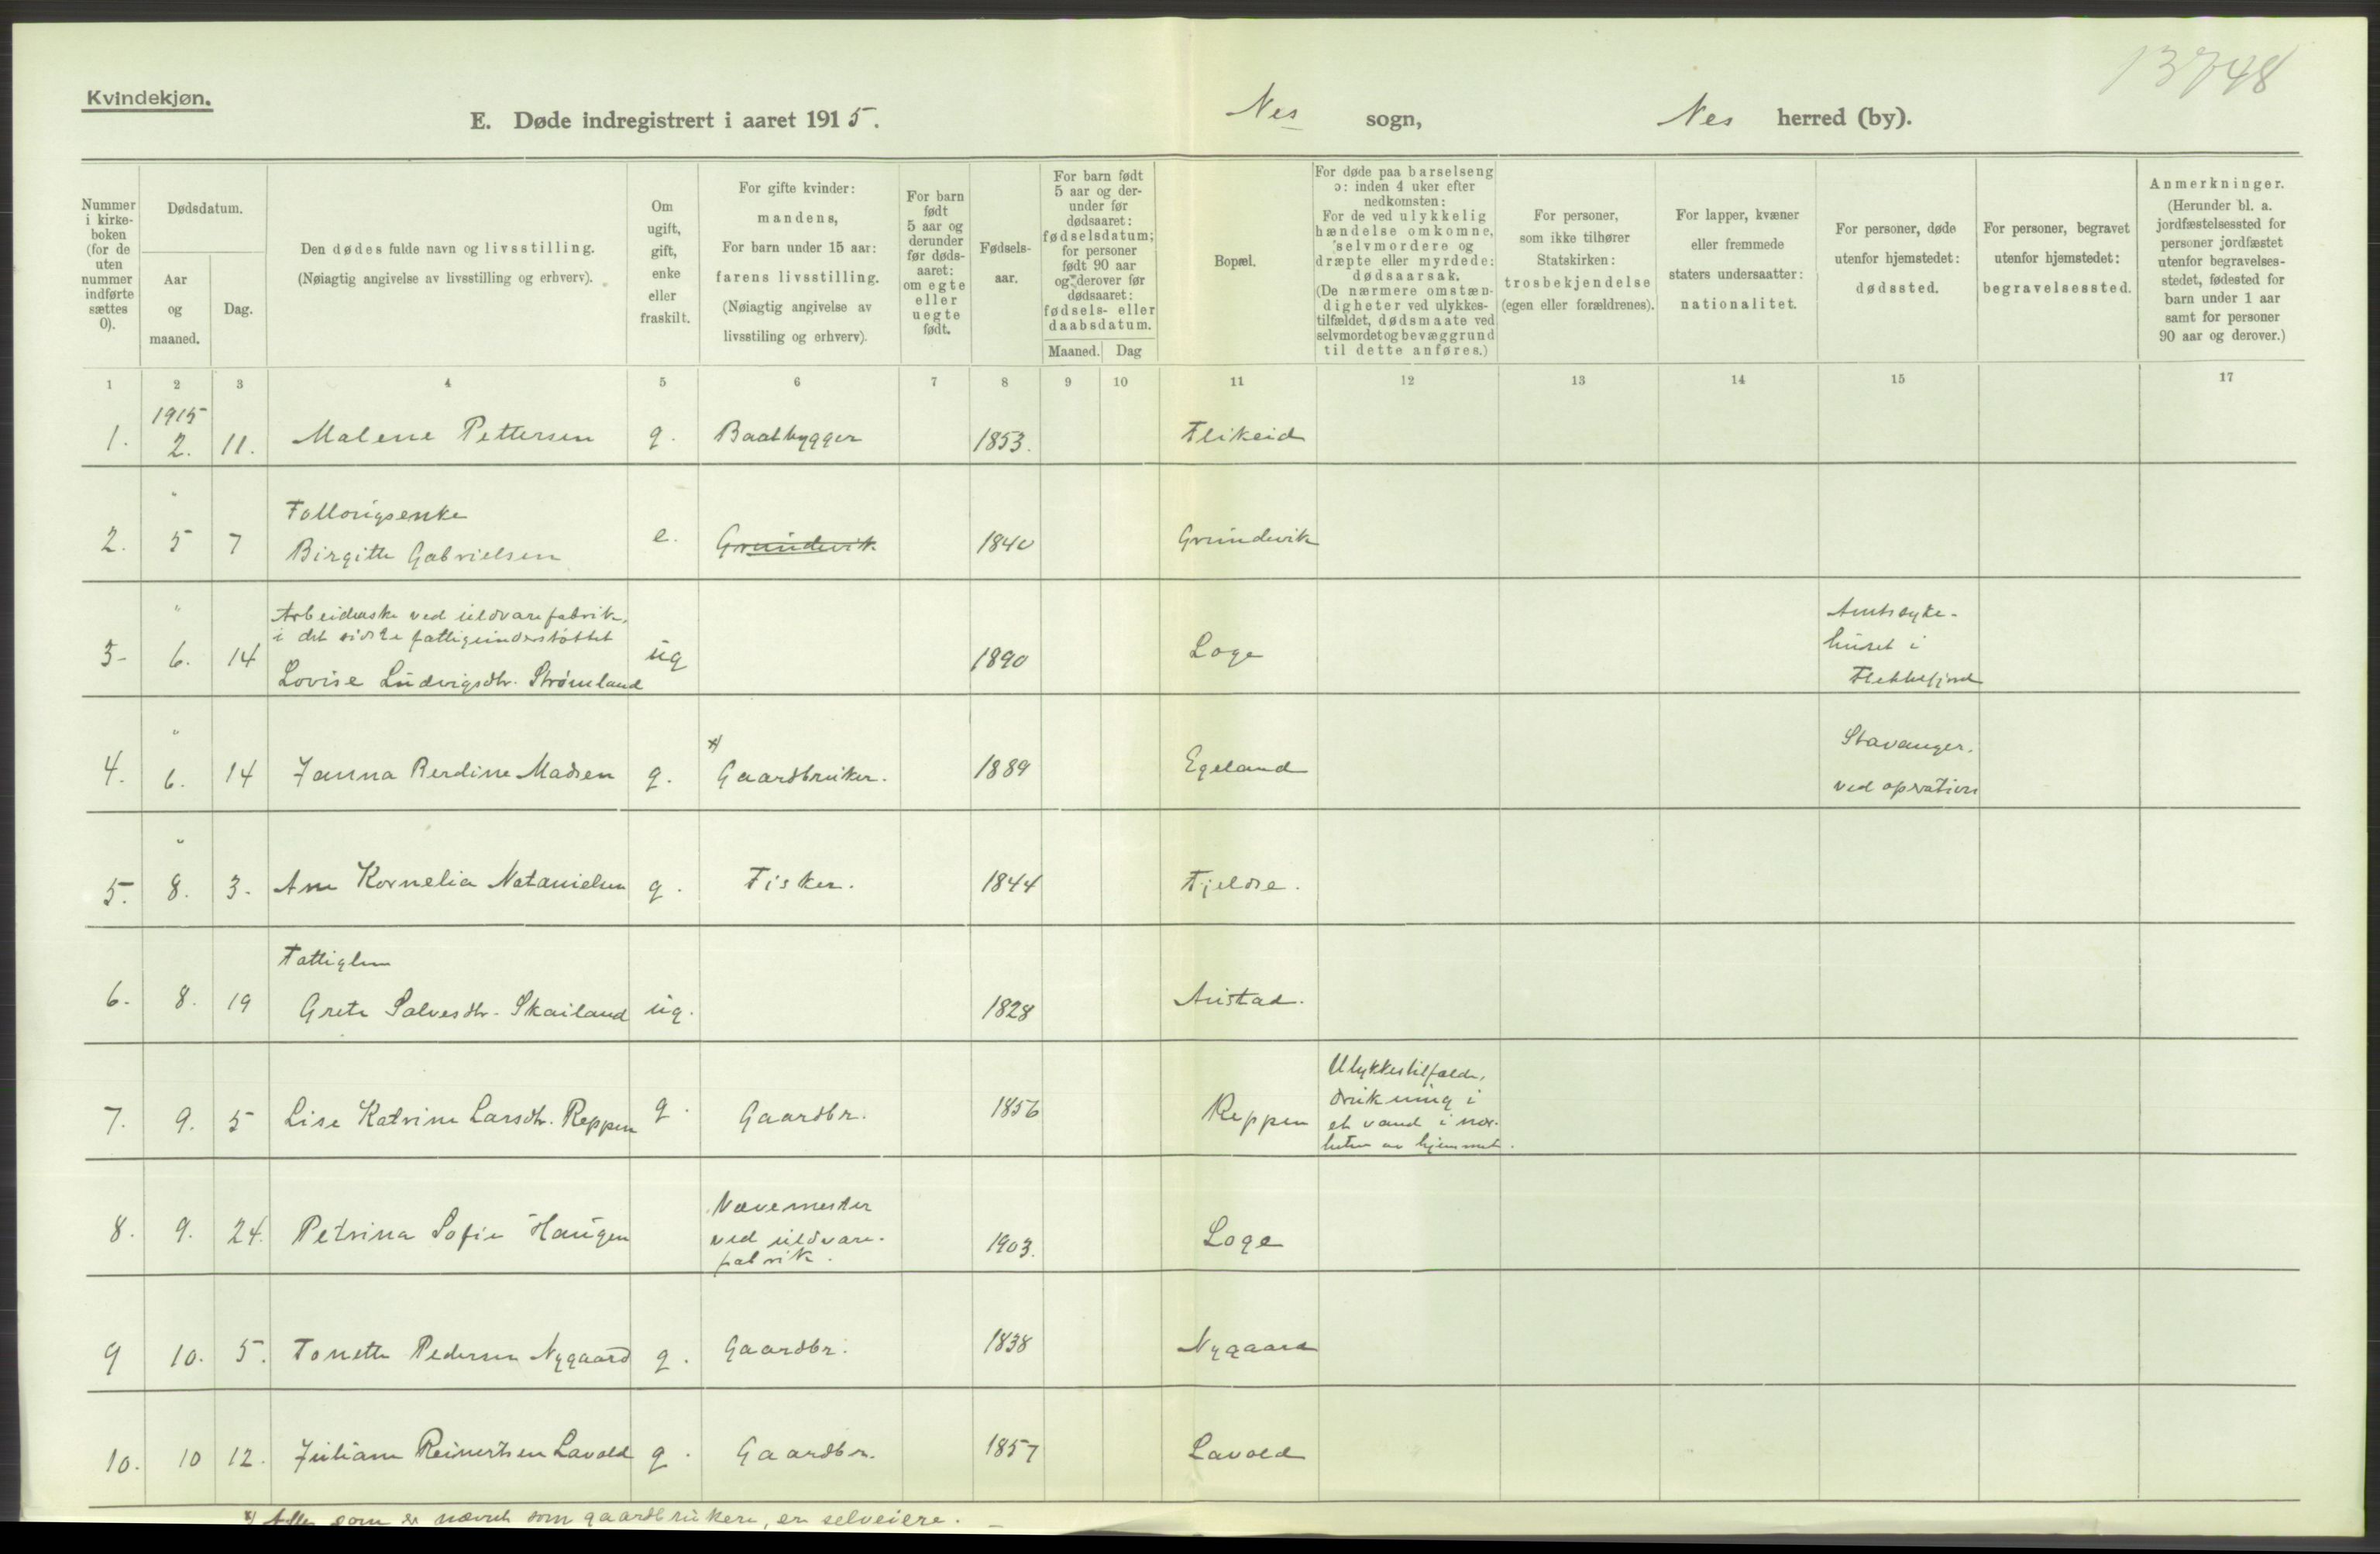 13748
Kvindekjøn.
E. Døde indregistrert i aaret 1915. Nes sogn, Nes herred (by).
Nummer i kirke-boken (for de uten nummer indførte sættes 0).
Dødsdatum.
Aar og maaned.
Dag.
Den dødes fulde navn og livsstilling.
(Nøiagtig angivelse av livsstilling og erhverv).
Om ugift, gift, enke eller fraskilt.
For gifte kvinder: mandens,
For barn under 15 aar: farens livsstilling.
(Nøiagtig angivelse av livsstiling og erhverv).
For barn født 5 aar og derunder før døds-aaret: om egte eller uegte født.
Fødsels-aar.
For barn født 5 aar og der-under før dødsaaret: fødselsdatum; for personer født 90 aar og derover før dødsaaret: fødsels- eller daabsdatum.
Maaned. Dag
Bopæl.
For døde paa barselseng ɔ: inden 4 uker efter nedkomsten:
For de ved ulykkelig hændelse omkomne, selvmordere og dræpte eller myrdede: dødsaarsak.
(De nærmere omstæn-digheter ved ulykkes-tilfældet, dødsmaate ved selvmordet og bevæggrund til dette anføres.)
For personer, som ikke tilhører Statskirken: trosbekjendelse (egen eller forældrenes).
For lapper, kvæner eller fremmede staters undersaatter: nationalitet.
For personer, døde utenfor hjemstedet: dødssted.
For personer, begravet utenfor hjemstedet: begravelsessted.
Anmerkninger.
(Herunder bl. a. jordfæstelsessted for personer jordfæstet utenfor begravelses-stedet, fødested for barn under 1 aar samt for personer 90 aar og derover.)
1 2 3 4 5 6 7 8 9 10 11 12 13 14 15 17
1915
1. 2. 11. Malene Pettersen g. Baatbygger 1853. Flikeid
"
Fattigenke
2. 5 7 Birgitte Gabrielsen e. Grundevik 1840 Grundevik
"
Arbeiderske ved uldvarefabrik,
i det sidste fattigunderstøttet
3- 6. 14 Lovise Ludvigsdtr. Strømland ug 1890 Loge Amtssyke-
huset i
Flekkefjord
"
4. 6. 14 Janna Berdine Madsen g. x) Gaardbruker. 1889 Egeland Stavanger.
ved opration
"
5. 8. 3. Ane Kornelia Natanielsen g. Fisker. 1844 Fjeldse.
Fattiglem
6. 8. 19 Grete Salvesdtr. Skailand ug. 1828 Austad.
7. 9. 5 Lise Katrine Larsdtr. Reppen g. Gaardbr. 1856 Reppen Ulykkestilfælde,
drukning i
et vand i nær-
heten av hjemmet.
8. 9. 24. Petrina Sofie Haugen Vævemester
ved uldvare-
fabrik. 1903. Loge
9 10. 5. Tonette Pedersen Nygaard g. Gaardbr. 1838 Nygaard
10. 10 12. Juliane Reinertsen Lavold g. Gaardbr. 1857 Lavold
x) Alle som er nævnt som gaardbrukere, er selveiere.